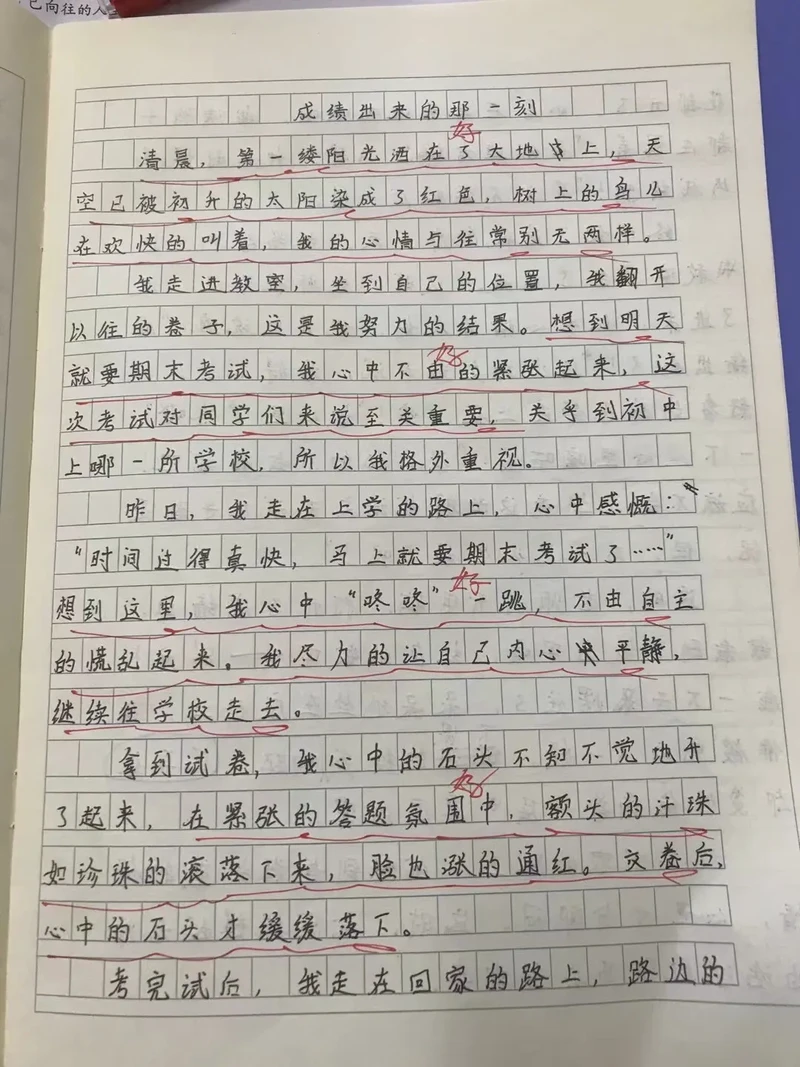 己向往的人
成绩出来的那一刻
好
清晨，第一缕阳光洒在了大地上，天
空已被初升的太阳染成了红色，树上的鸟儿
在欢快的叫着，我的心情与往常别无两样。
我走进教室，坐到自己的位置，我翻开
以往的卷子，这是我努力的结果。想到明天
好
就要期末考试，我心中不由的紧张起来，这
次考试对同学们来说至关重要，关乎到初中
上哪一所学校，所以我格外重视。
昨日，我走在上学的路上，心中感慨：
“时间过得真快，马上就要期末考试了……”
好
想到这里，我心中“咚咚”一跳，不由自主
的慌乱起来。我尽力的让自己内心平静，
继续往学校走去。
拿到试卷，我心中的石头不知不觉地升
好
了起来，在紧张的答题氛围中，额头的汁珠
如珍珠的滚落下来，脸也涨的通红。交卷后，
心中的石头才缓缓落下。
考完试后，我走在回家的路上，路边的